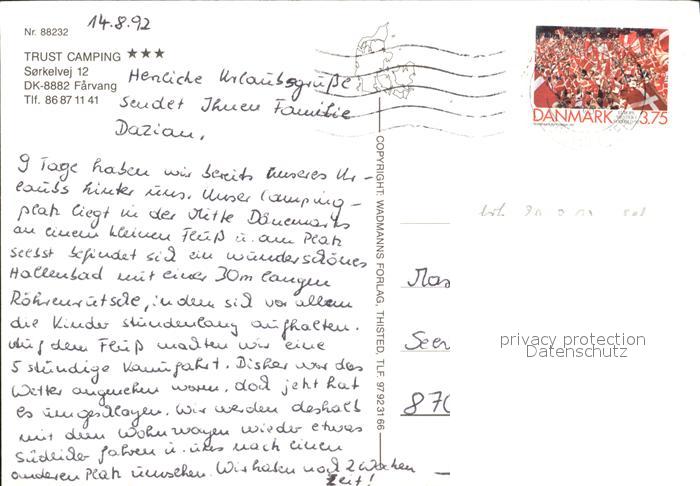 14.8.92
Nr. 88232
TRUST CAMPING ★★★
Sørkelvej 12
DK-8882 Fårvang
Tlf. 86 87 11 41
Herzliche Urlaubsgrüße
sendet Ihnen Familie
Dazian.
9 Tage haben wir bereits unseres Ur-
laubs hinter uns. Unser Camping-
platz liegt in der Mitte Dänemarks
an einem kleinen Fluß u. am Platz
selbst befindet sich ein wunderschönes
Hallenbad mit einer 30m langen
Röhrenrutsche, in dem sich vor allem
die Kinder stundenlang aufhalten.
Auf dem Fluß machten wir eine
5 stündige Kanufahrt. Bisher war das
Wetter angenehm warm, doch jetzt hat
es umgeschlagen. Wir werden deshalb
mit dem Wohnwagen wieder etwas
südlicher fahren u. uns nach einem
anderen Platz umsehen. Wir haben noch 2 Wochen
Zeit!
COPYRIGHT: WADMANNS FORLAG, THISTED, TLF. 97 92 31 66
DANMARK 3.75
Seer
870
privacy protection
Datenschutz